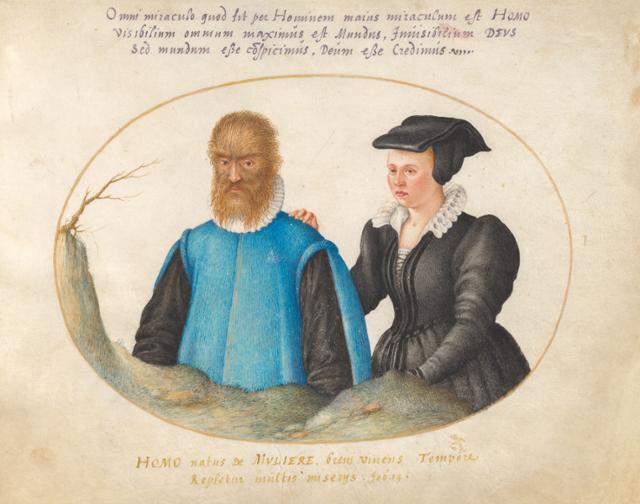 Omni miraculo quod fit per Hominem maius miraculum est HOMO
Visibilium omnium maximus est Mundus, Invisibilium DEVS
Sed mundum eße cōspicimus, Deum eße Credimus
HOMO natus de MVLIERE, breui viuens Tempore
Repletur multis miserys. Job 14.